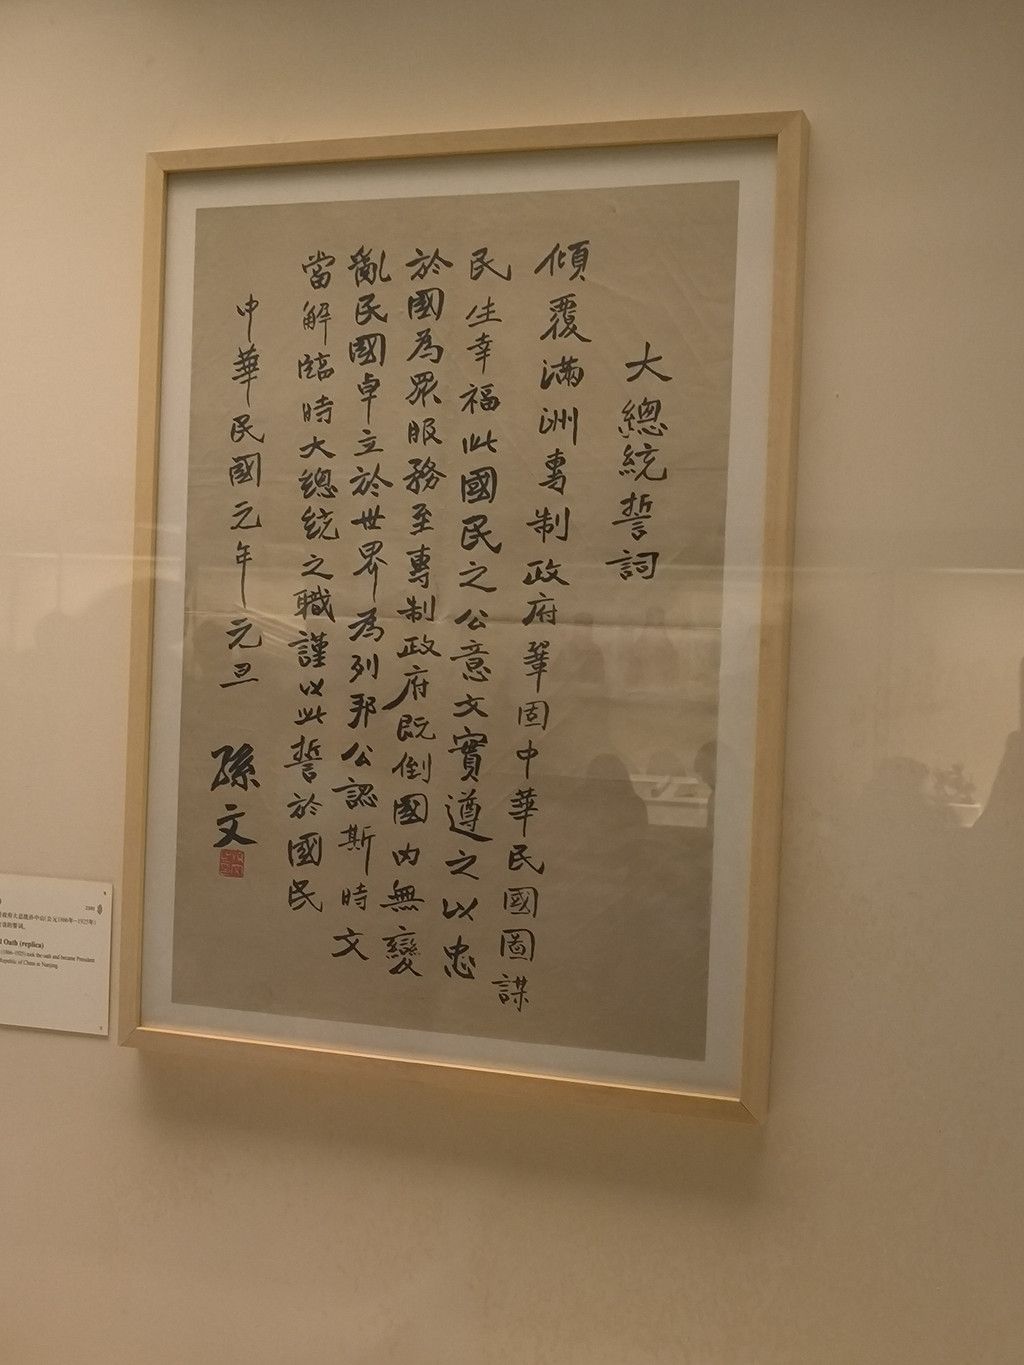 大總統誓詞
傾覆滿洲專制政府鞏固中華民國圖謀
民生幸福此國民之公意文實遵之以忠
於國為眾服務至專制政府既倒國內無變
亂民國卓立於世界為列邦公認斯時文
當解臨時大總統之職謹以此誓於國民
中華民國元年元旦
孫文
Oath (replica)
(1866-1925) took the oath and became President
Republic of China in Nanjing